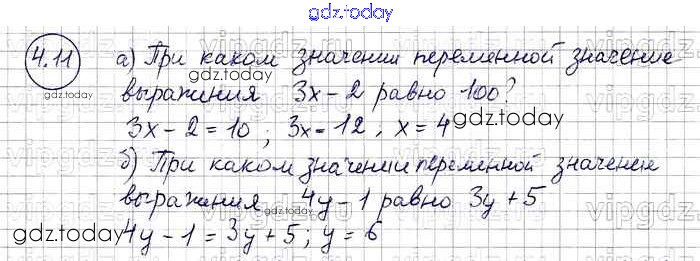 gdz.today
4.11 а) При каком значении переменной значение
gdz.today
выражения 3x - 2 равно 100?
3x - 2 = 10 ; 3x = 12 , x = 4 gdz.today
б) При каком значении переменной значение
выражения 4y - 1 равно 3y + 5
gdz.today 4y - 1 = 3y + 5 ; y = 6